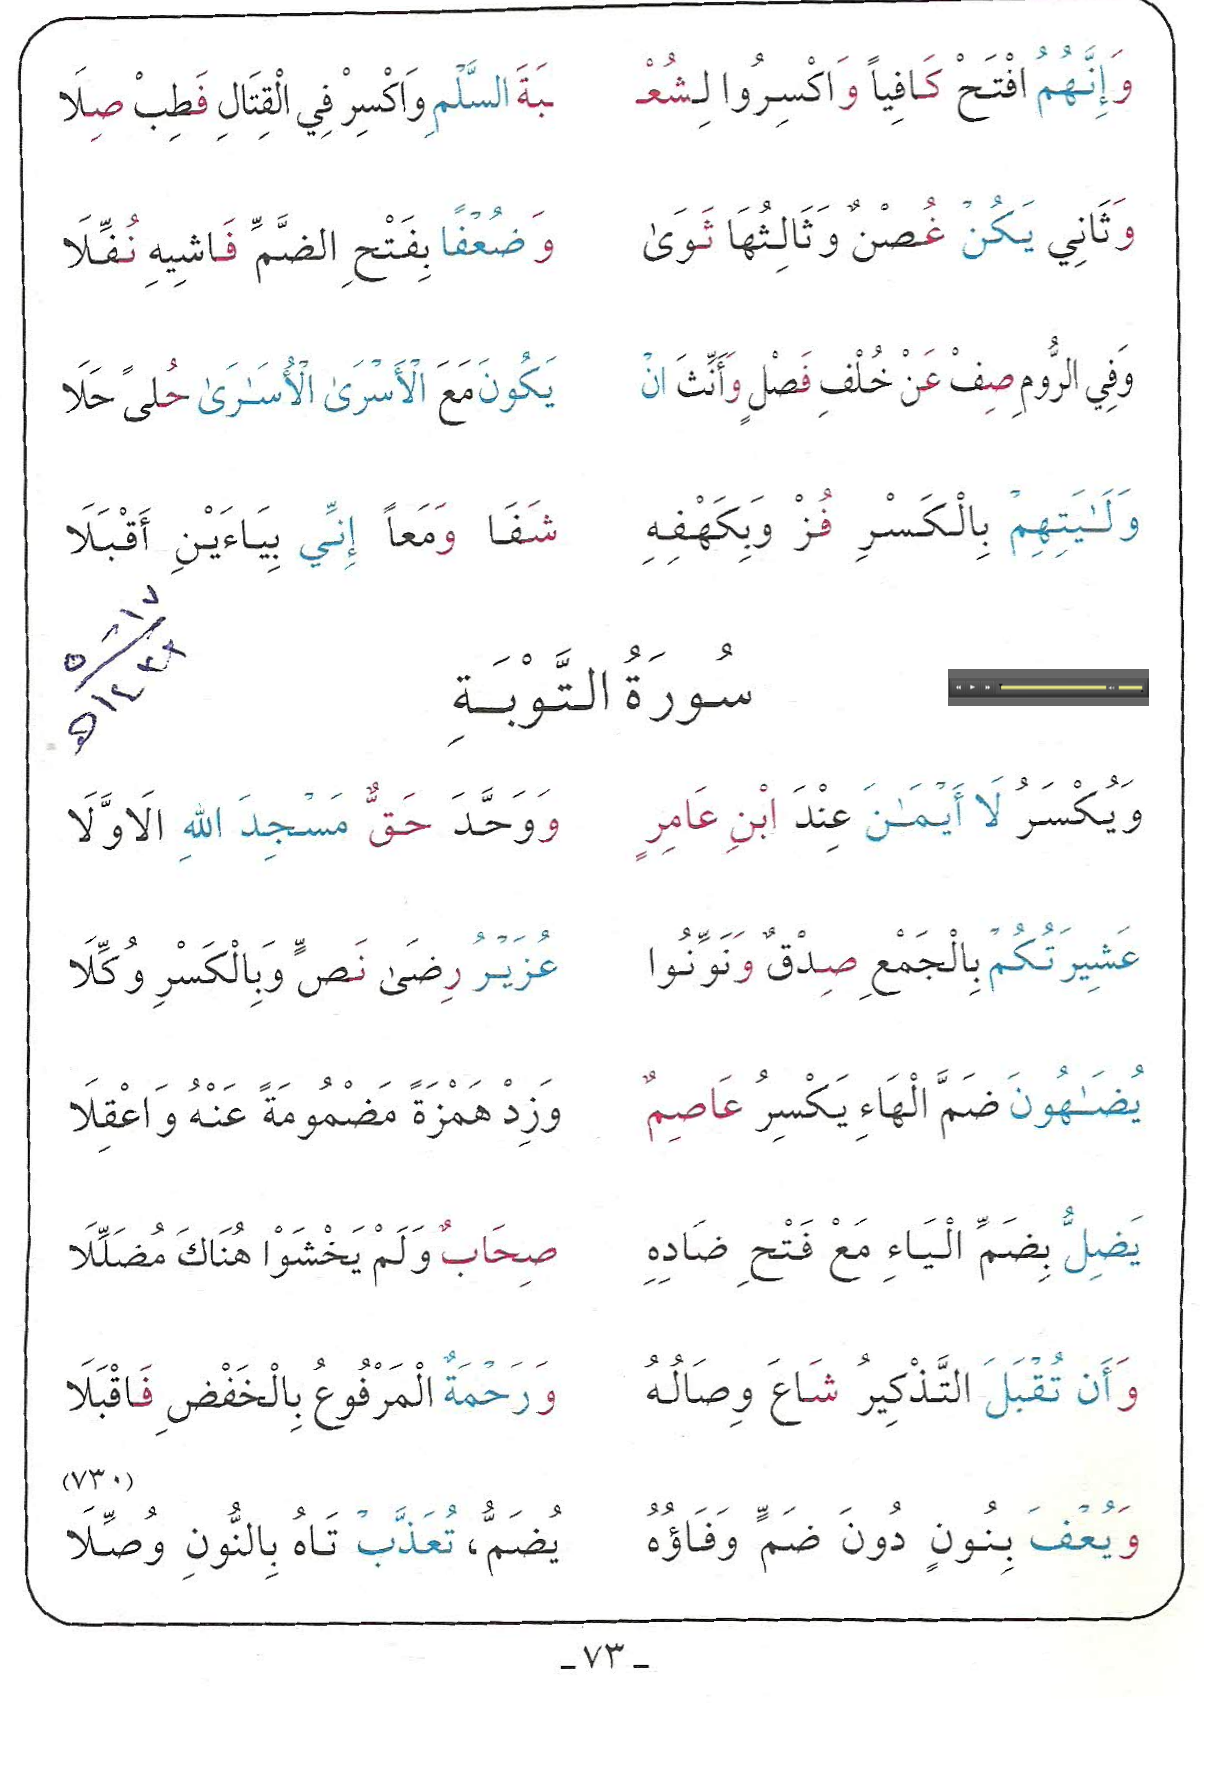 وَإِنَّهُمُ افْتَحْ كَافِياً وَاكْسِرُوا لِشُعْـ ـبَةَ السَّلْمِ وَاكْسِرْ فِي الْقِتَالِ فَطِبْ صِلَا
وَثَانِي يَكُنْ غُصْنٌ وَثَالِثُهَا ثَوَىٰ وَضُعْفًا بِفَتْحِ الضَّمِّ فَاشِيهِ نُفِّلَا
وَفِي الرُّومِ صِفْ عَنْ خُلْفِ فَصْلٍ وَأَنِّثَ انْ يَكُونَ مَعَ الْأَسْرَىٰ الْأُسَـٰرَىٰ حُلىً حَلَا
وَلَـٰيَتِهِمْ بِالْكَسْرِ فُزْ وَبِكَهْفِهِ شَفَا وَمَعاً إِنِّي بِيَاءَيْنِ أَقْبَلَا
سُورَةُ التَّوْبَةِ
وَيُكْسَرُ لَا أَيْمَـٰنَ عِنْدَ ابْنِ عَامِرٍ وَوَحَّدَ حَقٌّ مَسْجِدَ اللهِ الَاوَّلَا
عَشِيرَتُكُمْ بِالْجَمْعِ صِدْقٌ وَنَوِّنُوا عُزَيْرُ رِضَىٰ نَصٍّ وَبِالْكَسْرِ وُكِّلَا
يُضَـٰهُونَ ضَمَّ الْهَاءِ يَكْسِرُ عَاصِمٌ وَزِدْ هَمْزَةً مَضْمُومَةً عَنْهُ وَاعْقِلَا
يَضِلُّ بِضَمِّ الْيَاءِ مَعْ فَتْحِ ضَادِهِ صِحَابٌ وَلَمْ يَخْشَوْا هُنَاكَ مُضَلِّلَا
وَأَن تُقْبَلَ التَّذْكِيرُ شَاعَ وِصَالُهُ وَرَحْمَةٌ الْمَرْفُوعُ بِالْخَفْضِ فَاقْبَلَا
(٧٣٠)
وَيُعْفَ بِنُونٍ دُونَ ضَمٍّ وَفَاؤُهُ يُضَمُّ، تُعَذَّبْ تَاهُ بِالنُّونِ وُصِّلَا
ـ ٧٣ ـ